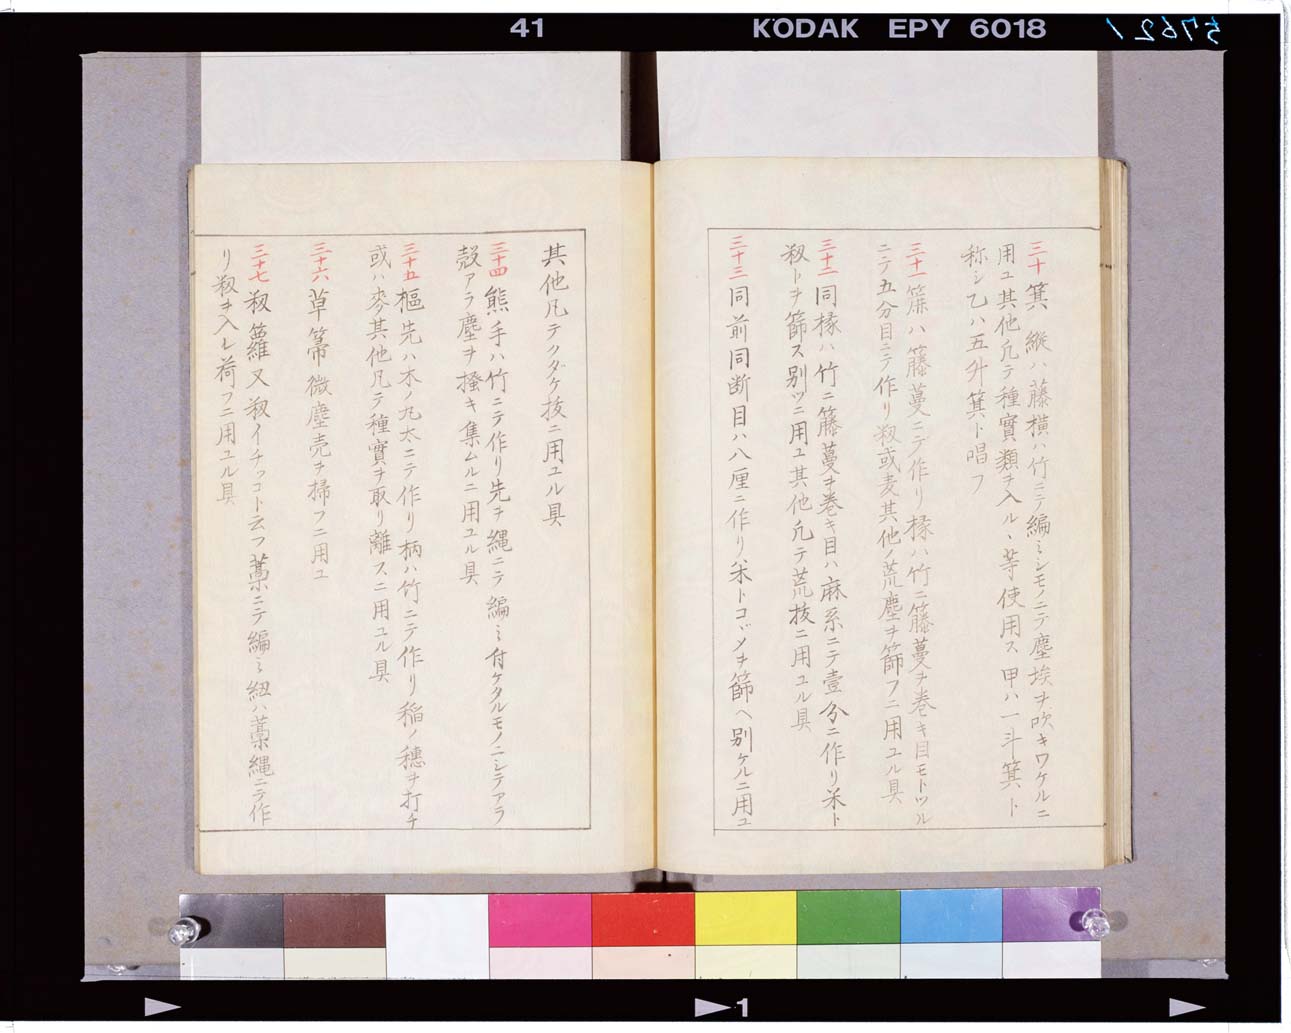 41 KODAK EPY 6018 57621
三十 箕 縦ハ藤横ハ竹ニテ編ミシモノニテ塵埃ヲ吹キワケルニ
用ユ其他凡テ種實類ヲ入ル、等使用ス甲ハ一斗箕ト
称シ乙ハ五升箕ト唱フ
三十一 簁ハ籐蔓ニテ作リ椽ハ竹ニ籐蔓ヲ巻キ目モトツル
ニテ五分目ニテ作リ籾或麦其他ノ荒塵ヲ篩フニ用ユル具
三十二 同椽ハ竹ニ籐蔓ヲ巻キ目ハ麻糸ニテ壹分ニ作リ米ト
籾トヲ篩ス別ツニ用ユ其他凡テ荒抜ニ用ユル具
三十三 同前同断目ハ八厘ニ作リ米トコヾメヲ篩ヘ別ケルニ用ユ
其他凡テクダケ抜ニ用ユル具
三十四 熊手ハ竹ニテ作リ先ヲ縄ニテ編ミ付ケタルモノニシテアラチ
殻アラ塵ヲ掻キ集ムルニ用ユル具
三十五 樞先ハ木ノ丸太ニテ作リ柄ハ竹ニテ作リ稲ノ穂ヲ打チ
或ハ麥其他凡テ種實ヲ取リ離スニ用ユル具
三十六 草箒微塵売ヲ掃フニ用ユ
三十七 籾籮又籾イチッコト云フ藁ニテ編ミ紐ハ藁縄ニテ作
リ籾ヲ入レ荷フニ用ユル具
1